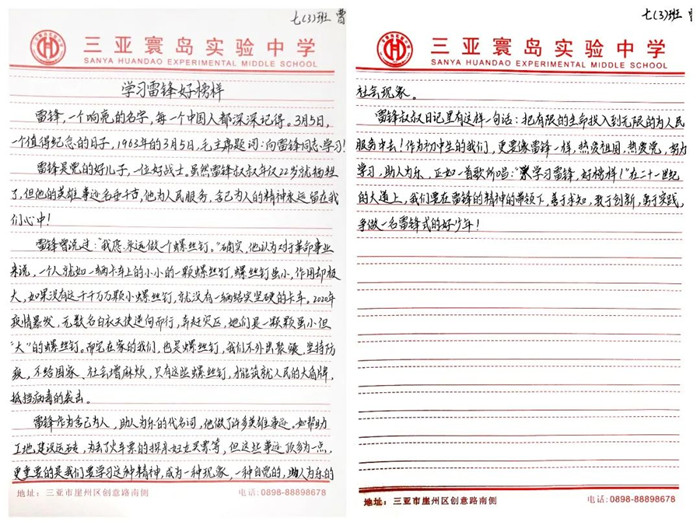 七(3)班 曹
三亚寰岛实验中学
SANYA HUANDAO EXPERIMENTAL MIDDLE SCHOOL
学习雷锋好榜样
雷锋,一个响亮的名字,每一个中国人都深深记得。3月5日,
一个值得纪念的日子,1963年的3月5日,毛主席题词:向雷锋同志学习!
雷锋是党的好儿子,一位好战士,虽然雷锋叔叔年仅22岁就牺牲
了,但他的英雄事迹名垂千古,他为人民服务,舍己为人的精神永远留在我
们心中!
雷锋曾说过:"我愿永远做个螺丝钉。"确实,他认为对于革命事业
来说,一个人就如一辆卡车上的小小的一颗螺丝钉,螺丝钉虽小,作用却极
大,如果没有这千千万万颗小螺丝钉,就没有一辆结实坚硬的卡车。2020年
疫情暴发,无数名白衣天使逆向而行,奔赴灾区,她们是一颗颗虽小但
"大"的螺丝钉。而宅在家的我们,也是螺丝钉,我们不外出聚餐,坚持防
疫,不给国家、社会增麻烦,只有这些螺丝钉,才能筑就人民的大盾牌,
抵挡病毒的袭击。
雷锋作为舍己为人,助人为乐的代名词,他做了许多英雄事迹,如帮助
工地建设运砖,为丢了火车票的
等,但这些事迹仅为一点,
更重要的是我们要学习这种精神,成为一种现象,一种自觉的,助人为乐的
地址:三亚市崖州区创意路南侧
电话:0898-88898678
七(3)班
三亚寰岛实验中学
SANYA HUANDAO EXPERIMENTAL MIDDLE SCHOOL
社会现象。
雷锋叔叔日记里有这样一句话:把有限的生命投入到无限的为人民
服务中去!作为初中生的我们,更要像雷锋一样,热爱祖国,热爱党,努力
学习,助人为乐,正如一首歌所唱:"学习雷锋,好榜样!"在二十一世纪
的大道上,我们要在雷锋的精神的带领下,善于求知,敢于创新,勇于实践,
争做一名雷锋式的好少年!
地址:三亚市崖州区创意路南侧
电话:0898-88898678